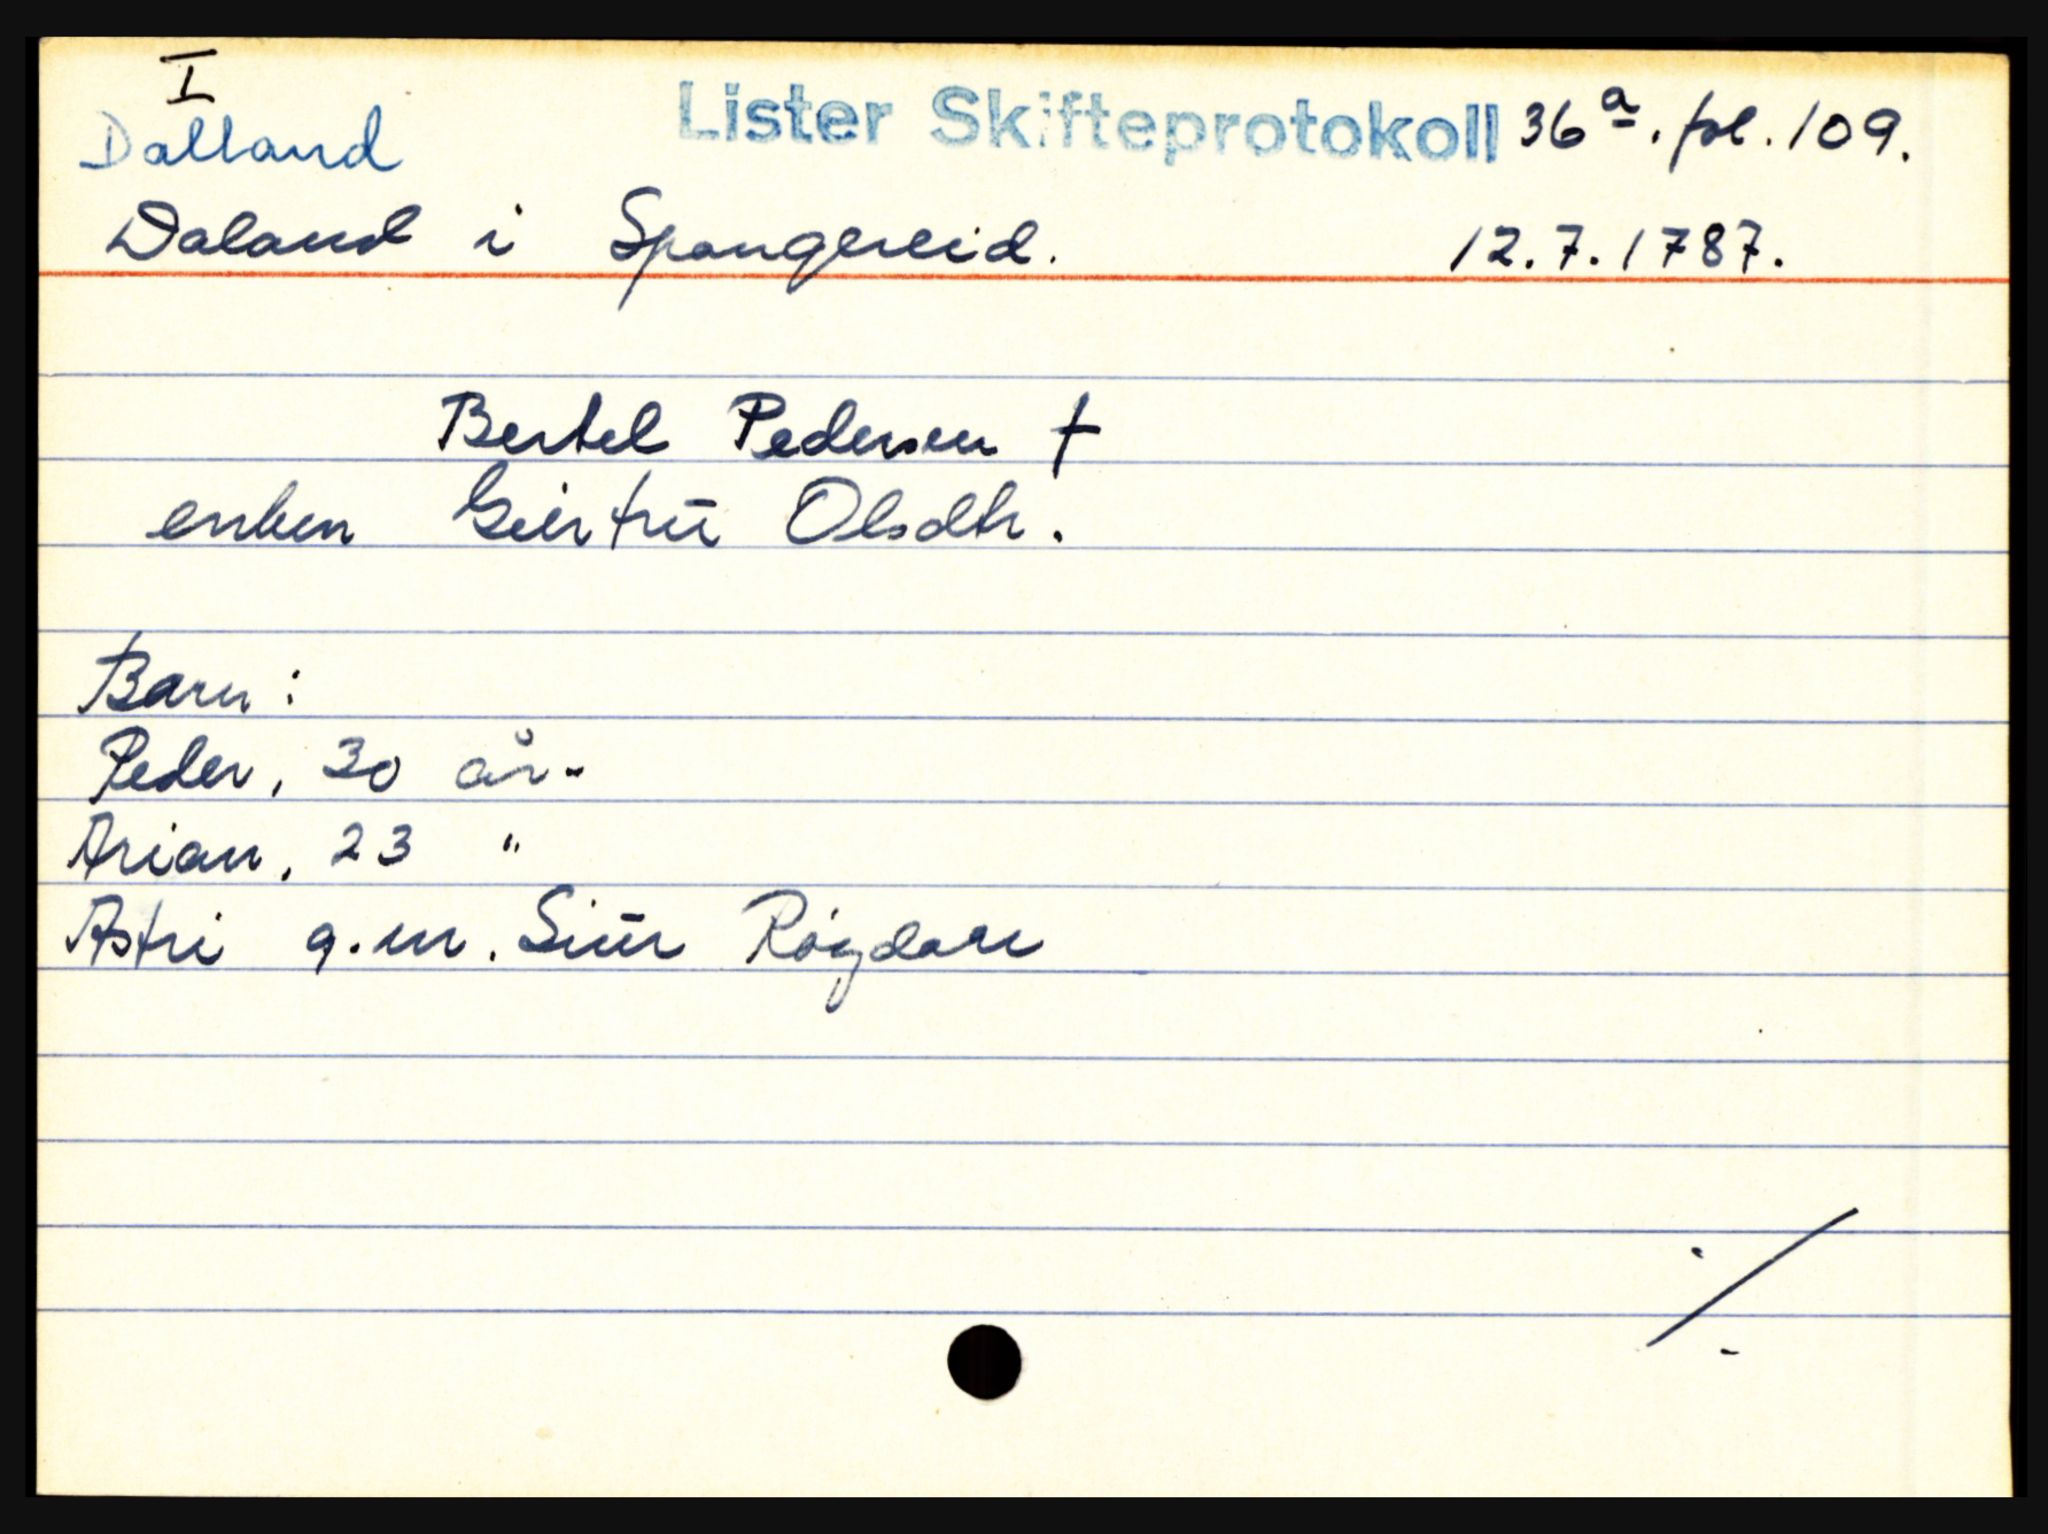 I
Dalland
Lister Skifteprotokoll 36a. fol. 109.
Daland i Spangereid. 12.7.1787.
Bertel Pedersen †
enken Geertrū Olsdtr.
Barn:
Peder, 30 år.
Arian, 23 "
Astri g.m. Siūr Røydal